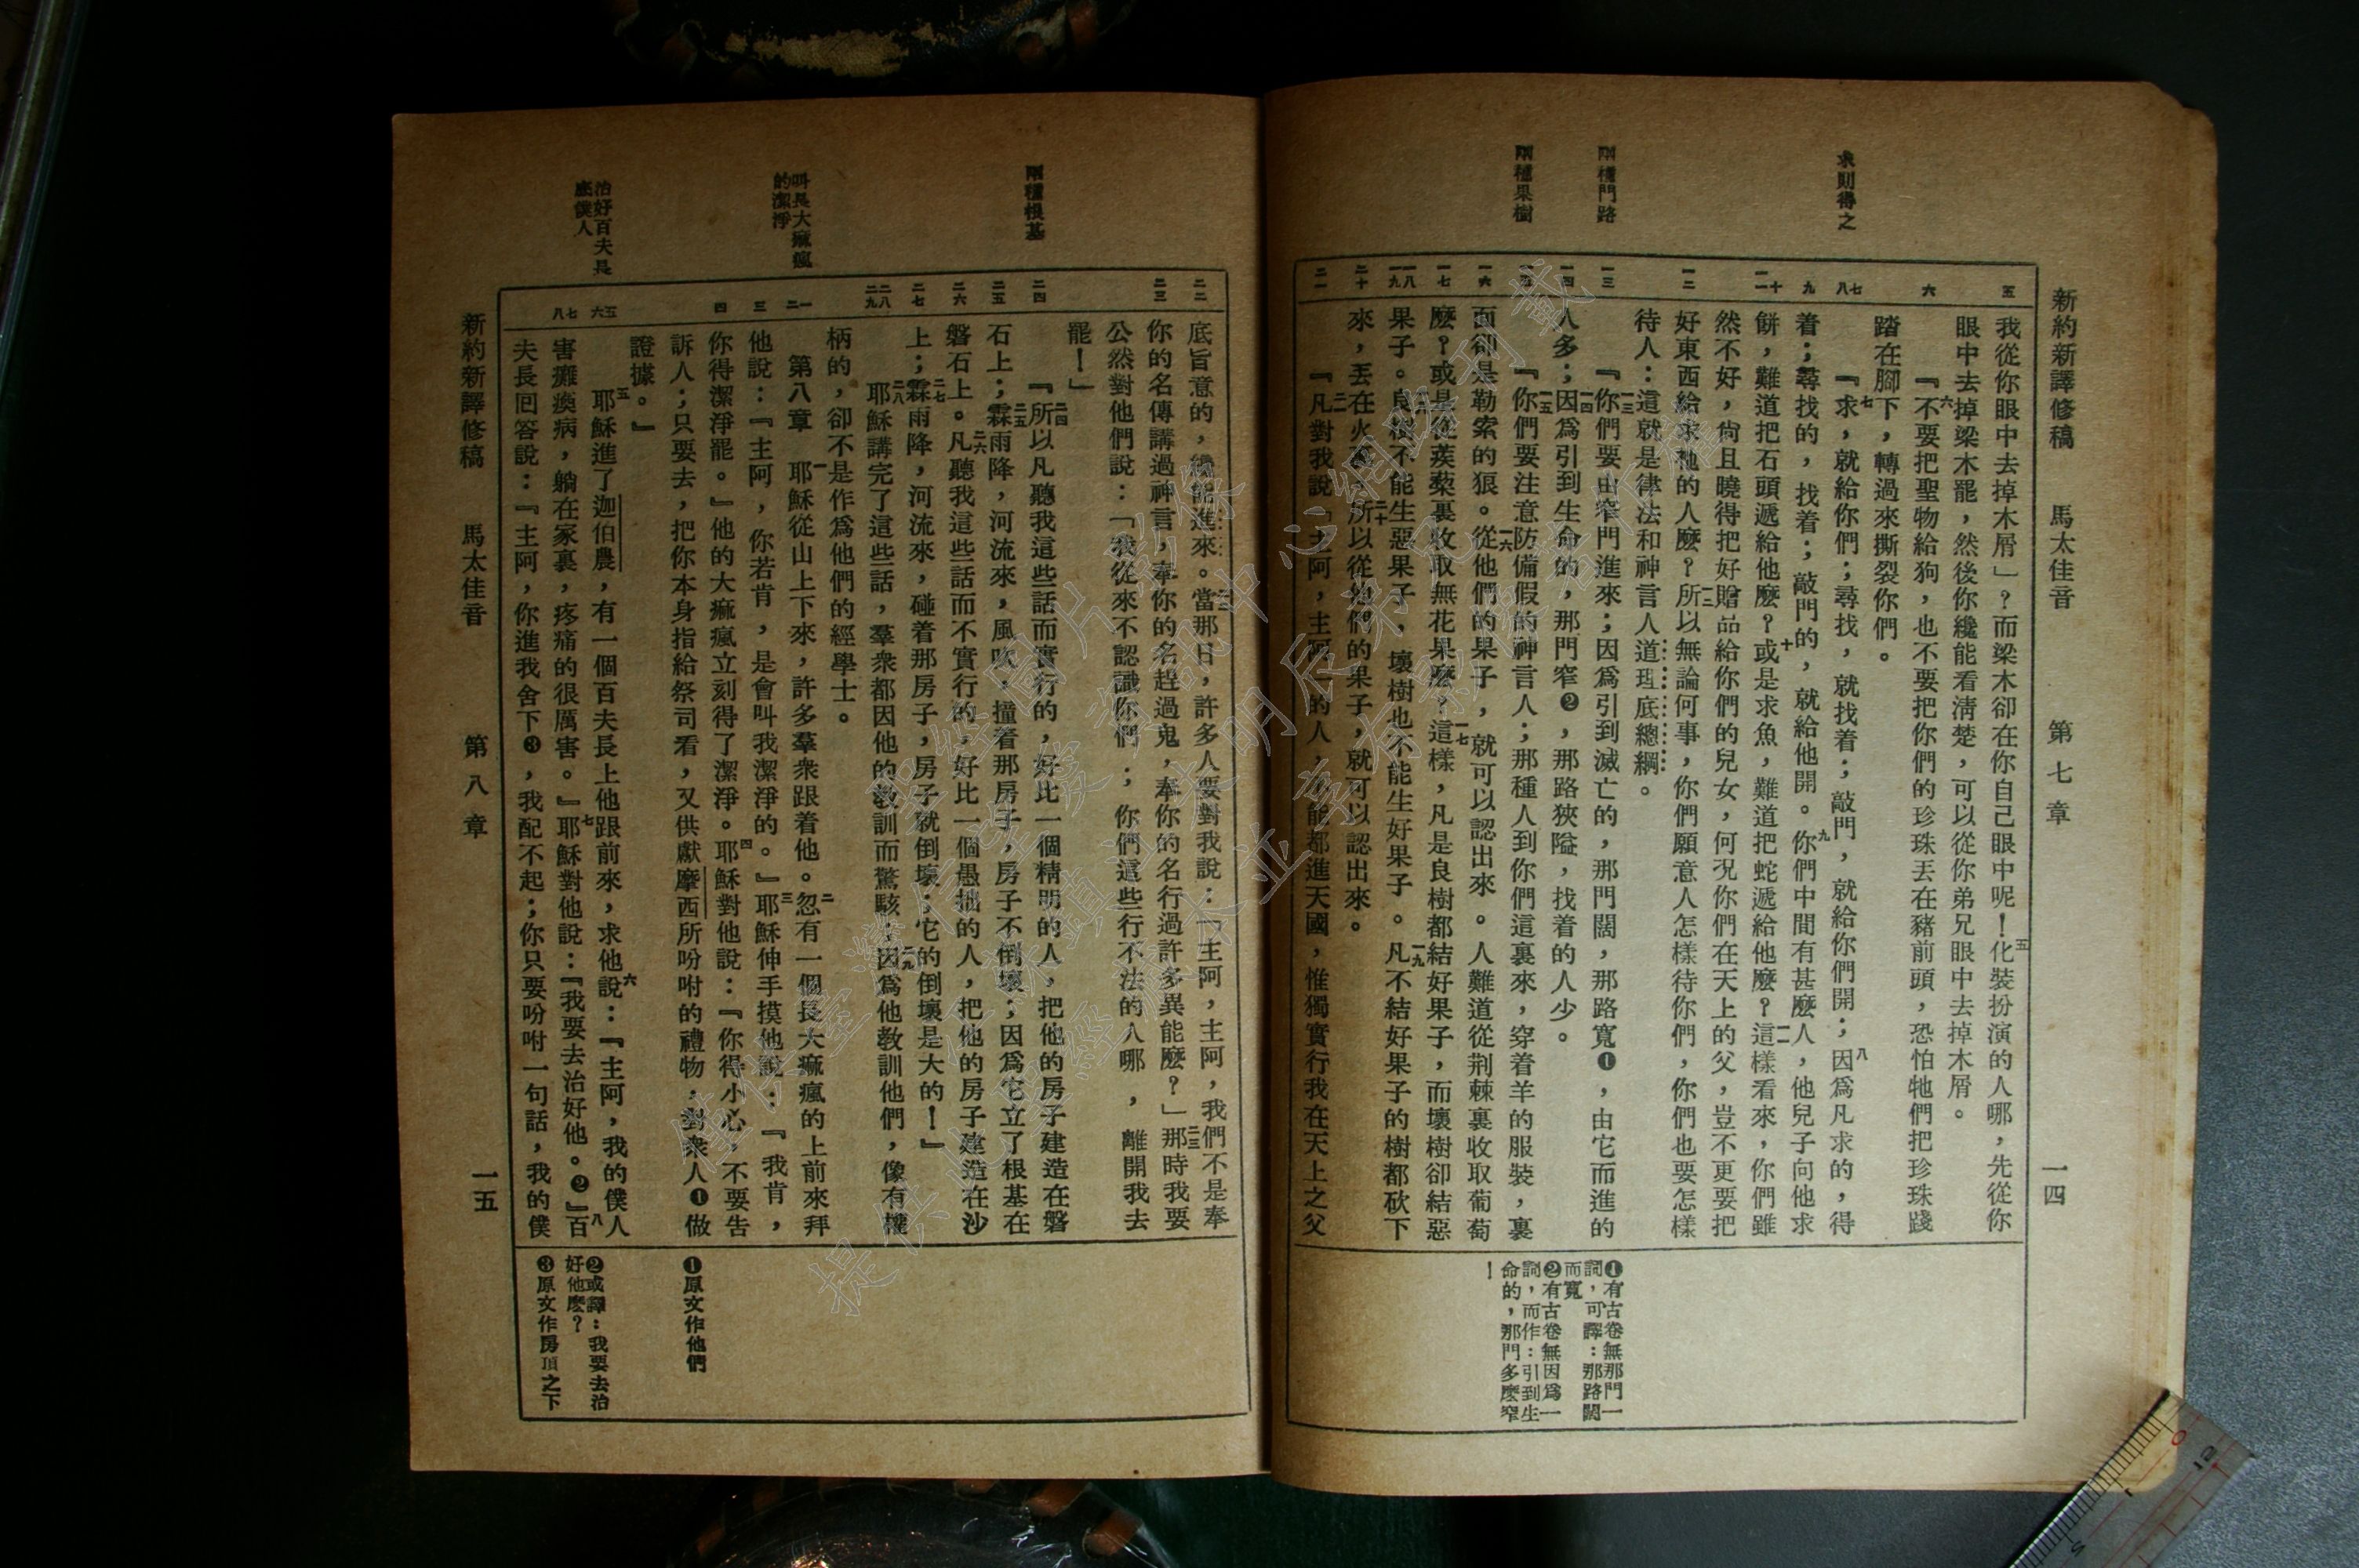 新約新譯修稿　馬太佳音　第七章　一四
求則得之
兩種門路
兩種果樹
五
六
七八
九
十一一
一二
一三
一四
一五
一六
一七
一八一九
二十
二一
我從你眼中去掉木屑」？而梁木卻在你自己眼中呢！五化裝扮演的人哪，先從你
眼中去掉梁木罷，然後你纔能看清楚，可以從你弟兄眼中去掉木屑。
六『不要把聖物給狗，也不要把你們的珍珠丟在豬前頭，恐怕牠們把珍珠踐
踏在腳下，轉過來撕裂你們。
七『求，就給你們；尋找，就找着；敲門，就給你們開；八因爲凡求的，得
着；尋找的，找着；敲門的，就給他開。九你們中間有甚麼人，他兒子向他求
餅，難道把石頭遞給他麼？十或是求魚，難道把蛇遞給他麼？一一這樣看來，你們雖
然不好，尙且曉得把好贈品給你們的兒女，何況你們在天上的父，豈不更要把
好東西給求他的人麼？一二所以無論何事，你們願意人怎樣待你們，你們也要怎樣
待人：這就是律法和神言人道理底總綱。
一三『你們要由窄門進來；因爲引到滅亡的，那門闊，那路寬❶，由它而進的
人多；一四因爲引到生命的，那門窄❷，那路狹隘，找着的人少。
一五『你們要注意防備假的神言人；那種人到你們這裏來，穿着羊的服裝，裏
面卻是勒索的狼。一六從他們的果子，就可以認出來。人難道從荆棘裏收取葡萄
麼？或是從蒺藜裏收取無花果麼？一七這樣，凡是良樹都結好果子，而壞樹卻結惡
果子。一八良樹不能生惡果子，壞樹也不能生好果子。一九凡不結好果子的樹都砍下
來，丟在火裏。二十所以從他們的果子，就可以認出來。
二一『凡對我說「主阿，主阿」的人，不能都進天國，惟獨實行我在天上之父
❶有古卷無那門一
詞，可譯：那路闊
而寬
❷有古卷無因爲一
詞，而作：引到生
命的，那門多麼窄
！
兩種根基
叫長大痲瘋
的潔淨
治好百夫長
底僕人
二二
二三
二四
二五
二六
二七
二八二九
一二
三
四
五六
七八
底旨意的，纔能進來。二二當那日，許多人要對我說：「主阿，主阿，我們不是奉
你的名傳講過神言，奉你的名趕過鬼，奉你的名行過許多異能麼？」二三那時我要
公然對他們說：「我從來不認識你們；你們這些行不法的人哪，離開我去
罷！」
二四『所以凡聽我這些話而實行的，好比一個精明的人，把他的房子建造在磐
石上；二五霖雨降，河流來，風吹，撞着那房子，房子不倒壞；因爲它立了根基在
磐石上。二六凡聽我這些話而不實行的，好比一個愚拙的人，把他的房子建造在沙
上；二七霖雨降，河流來，碰着那房子，房子就倒壞；它的倒壞是大的！』
二八耶穌講完了這些話，羣衆都因他的教訓而驚駭；二九因爲他教訓他們，像有權
柄的，卻不是作爲他們的經學士。
第八章　一耶穌從山上下來，許多羣衆跟着他。二忽有一個長大痲瘋的上前來拜
他說：『主阿，你若肯，是會叫我潔淨的。』三耶穌伸手摸他說：『我肯，
你得潔淨罷。』他的大痲瘋立刻得了潔淨。四耶穌對他說：『你得小心，不要告
訴人；只要去，把你本身指給祭司看，又供獻摩西所吩咐的禮物，對衆人❶做
證據。』
五耶穌進了迦伯農，有一個百夫長上他跟前來，求他六說：『主阿，我的僕人
害癱瘓病，躺在家裏，疼痛的很厲害。』七耶穌對他說：『我要去治好他。❷』八百
夫長回答說：『主阿，你進我舍下❸，我配不起；你只要吩咐一句話，我的僕
❶原文作他們
❷或譯：我要去治
好他麼？
❸原文作房頂之下
新約新譯修稿　馬太佳音　第八章　一五